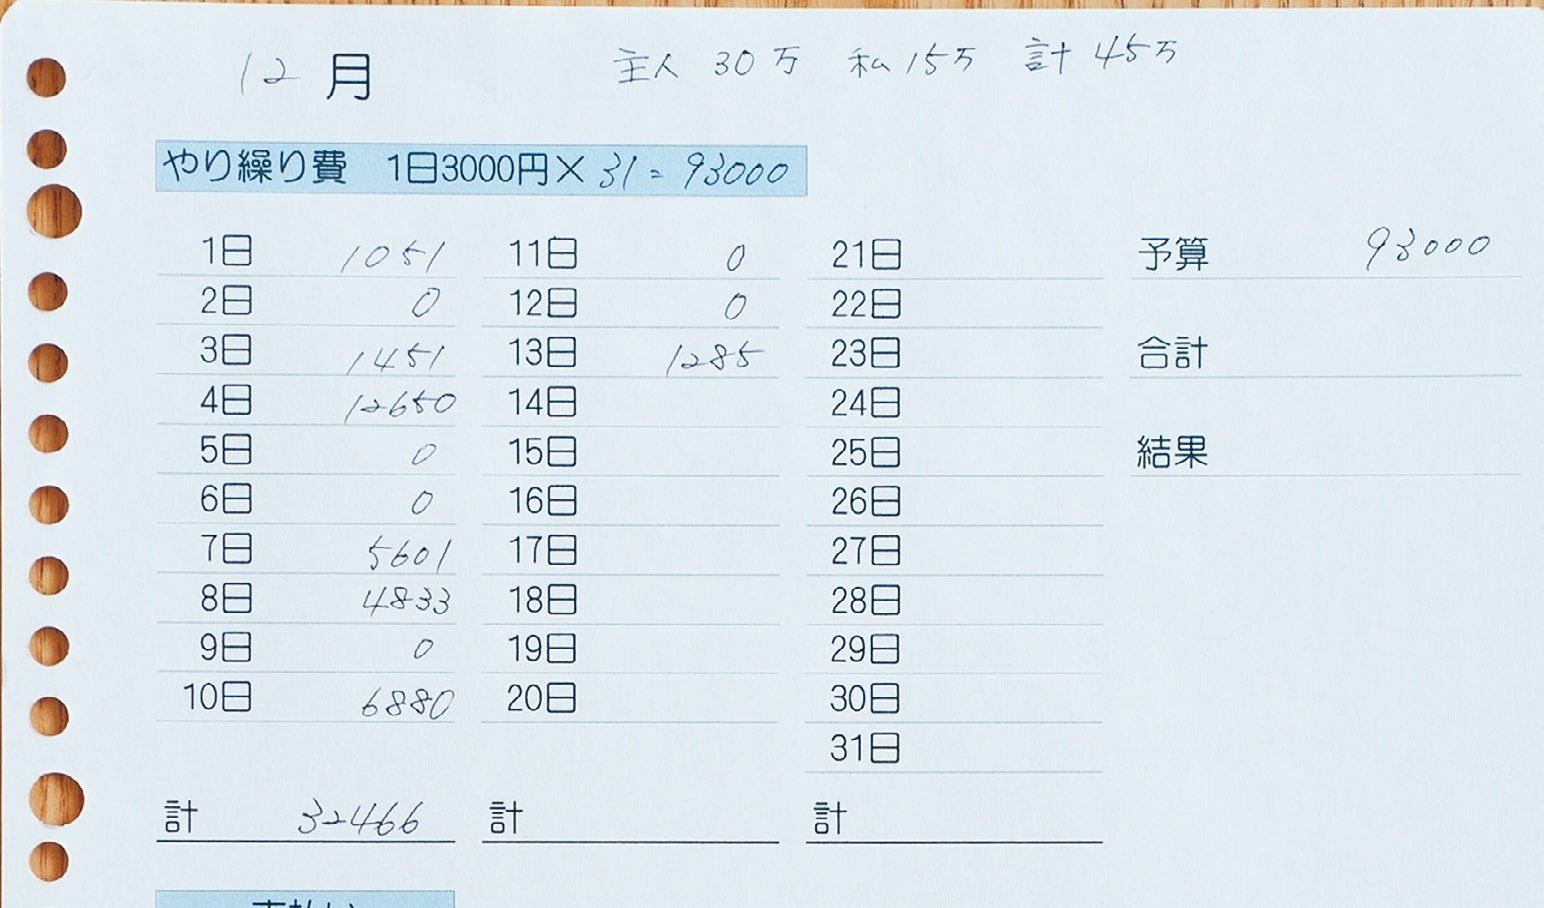 12月 主人 30万 私 15万 計 45万
やり繰り費 1日3000円× 31 = 93000
1日 1051
2日 0
3日 1451
4日 12650
5日 0
6日 0
7日 5601
8日 4833
9日 0
10日 6880
計 32466
11日 0
12日 0
13日 1285
14日
15日
16日
17日
18日
19日
20日
計
21日
22日
23日
24日
25日
26日
27日
28日
29日
30日
31日
計
予算 93000
合計
結果